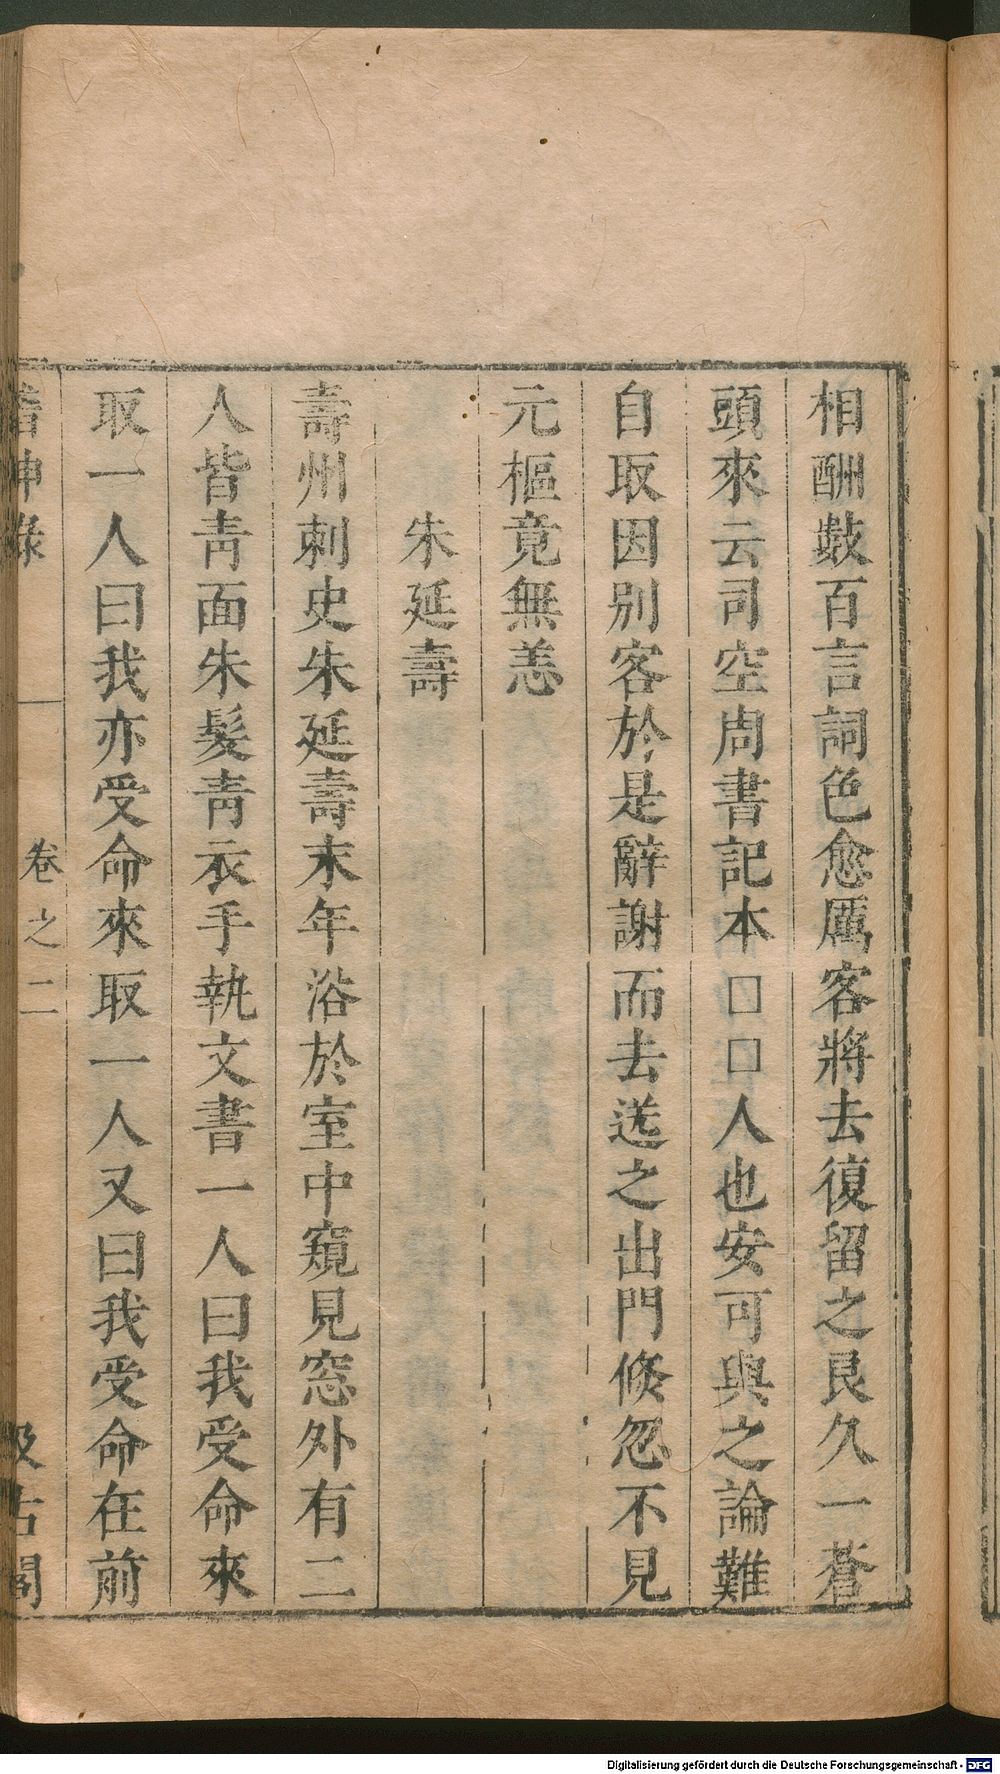 相酬數百言詞色愈厲客將去復留之良久一蒼
頭來云司空周書記本□□人也安可與之論難
自取因别客於是辭謝而去送之出門倏忽不見
元樞竟無恙
朱延壽
壽州刺史朱延壽末年浴於室中窺見窓外有二
人皆青面朱髮青衣手執文書一人曰我受命來
取一人曰我亦受命來取一人又曰我受命在前
稽神錄
卷之二
汲古閣
Digitalisierung gefördert durch die Deutsche Forschungsgemeinschaft - DFG